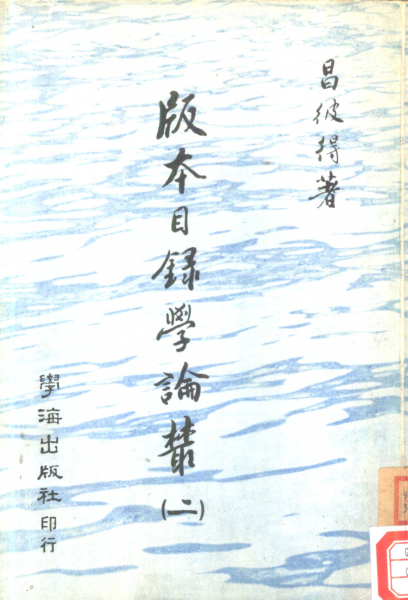 昌彼得著
版本目録學論叢(二)
學海出版社印行